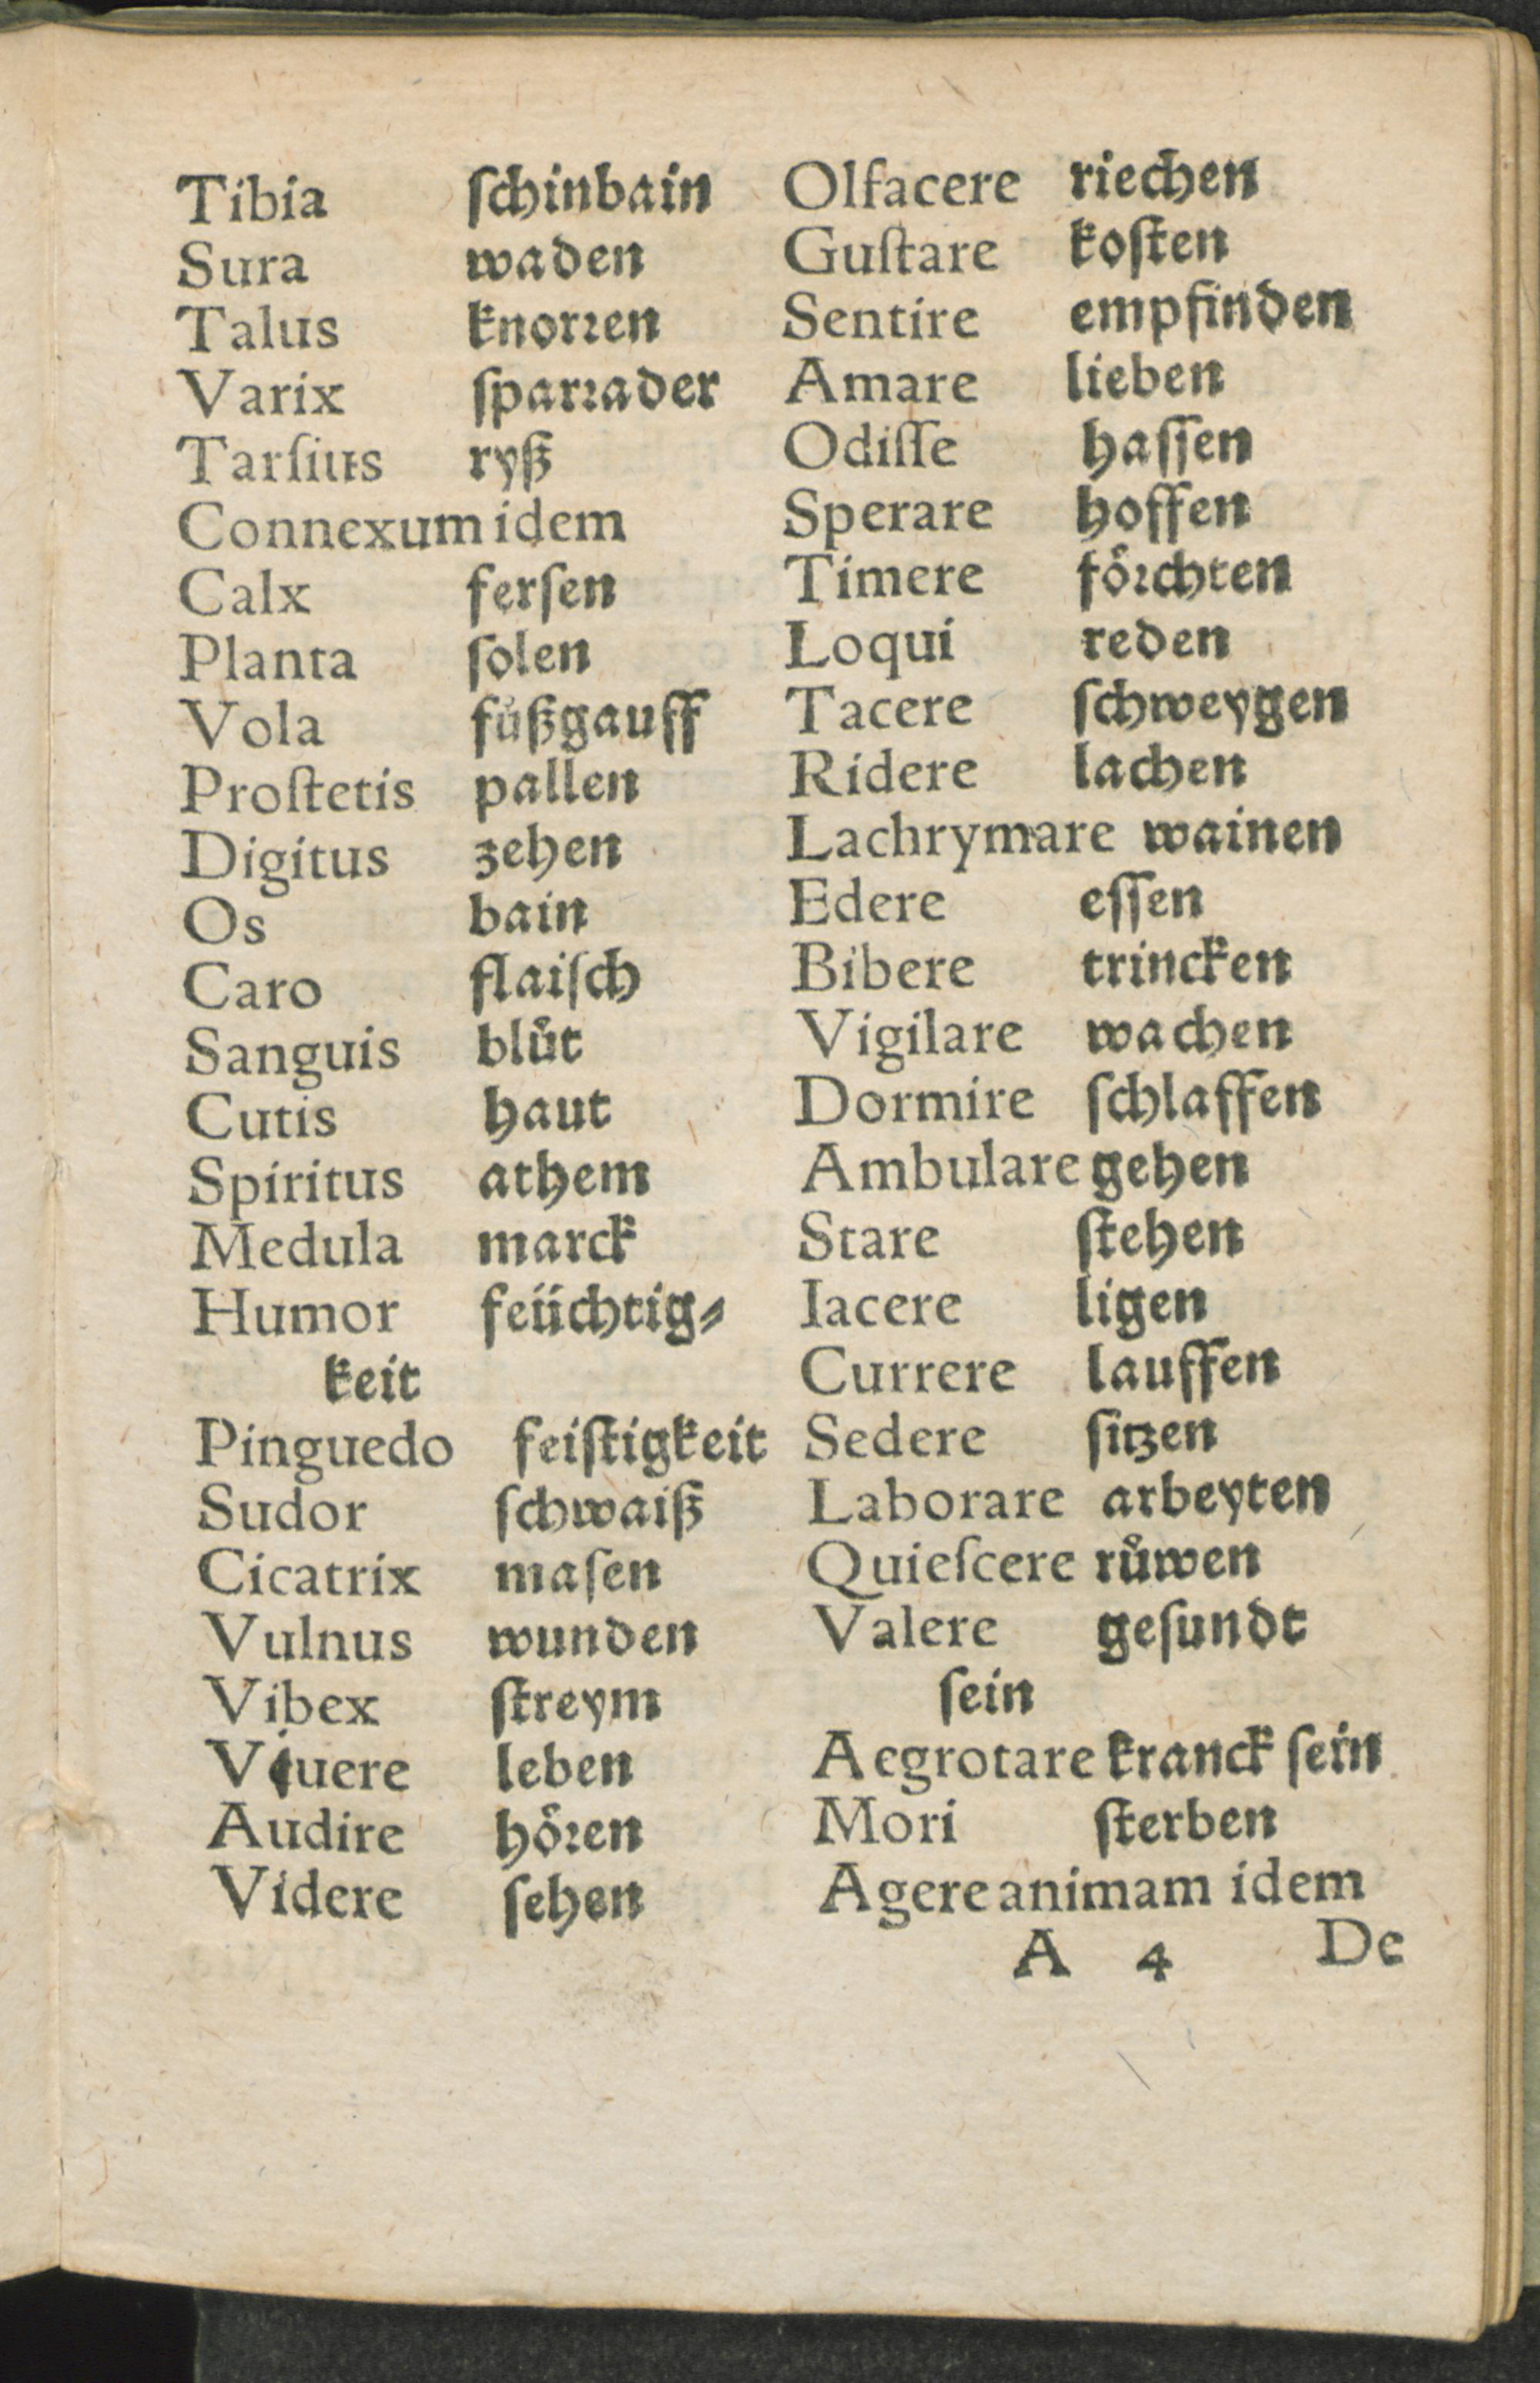 Tibia ſchinbain
Sura waden
Talus knorꝛen
Varix ſparꝛader
Tarſius ryß
Connexum idem
Calx ferſen
Planta ſolen
Vola fůßgauff
Proſtetis pallen
Digitus zehen
Os bain
Caro flaiſch
Sanguis blůt
Cutis haut
Spiritus athem
Medula marck
Humor feüchtig⸗
keit
Pinguedo feiſtigkeit
Sudor ſchwaiß
Cicatrix maſen
Vulnus wunden
Vibex ſtreym
Viuere leben
Audire hoͤꝛen
Videre ſehen
Olfacere riechen
Guſtare koſten
Sentire empfinden
Amare lieben
Odiſſe haſſen
Sperare hoffen
Timere foͤꝛchten
Loqui reden
Tacere ſchweygen
Ridere lachen
Lachrymare wainen
Edere eſſen
Bibere trincken
Vigilare wachen
Dormire ſchlaffen
Ambulare gehen
Stare ſtehen
Iacere ligen
Currere lauffen
Sedere ſitzen
Laborare arbeyten
Quieſcere růwen
Valere geſundt
ſein
Aegrotare kranck ſein
Mori ſterben
Agere animam idem
A 4 De